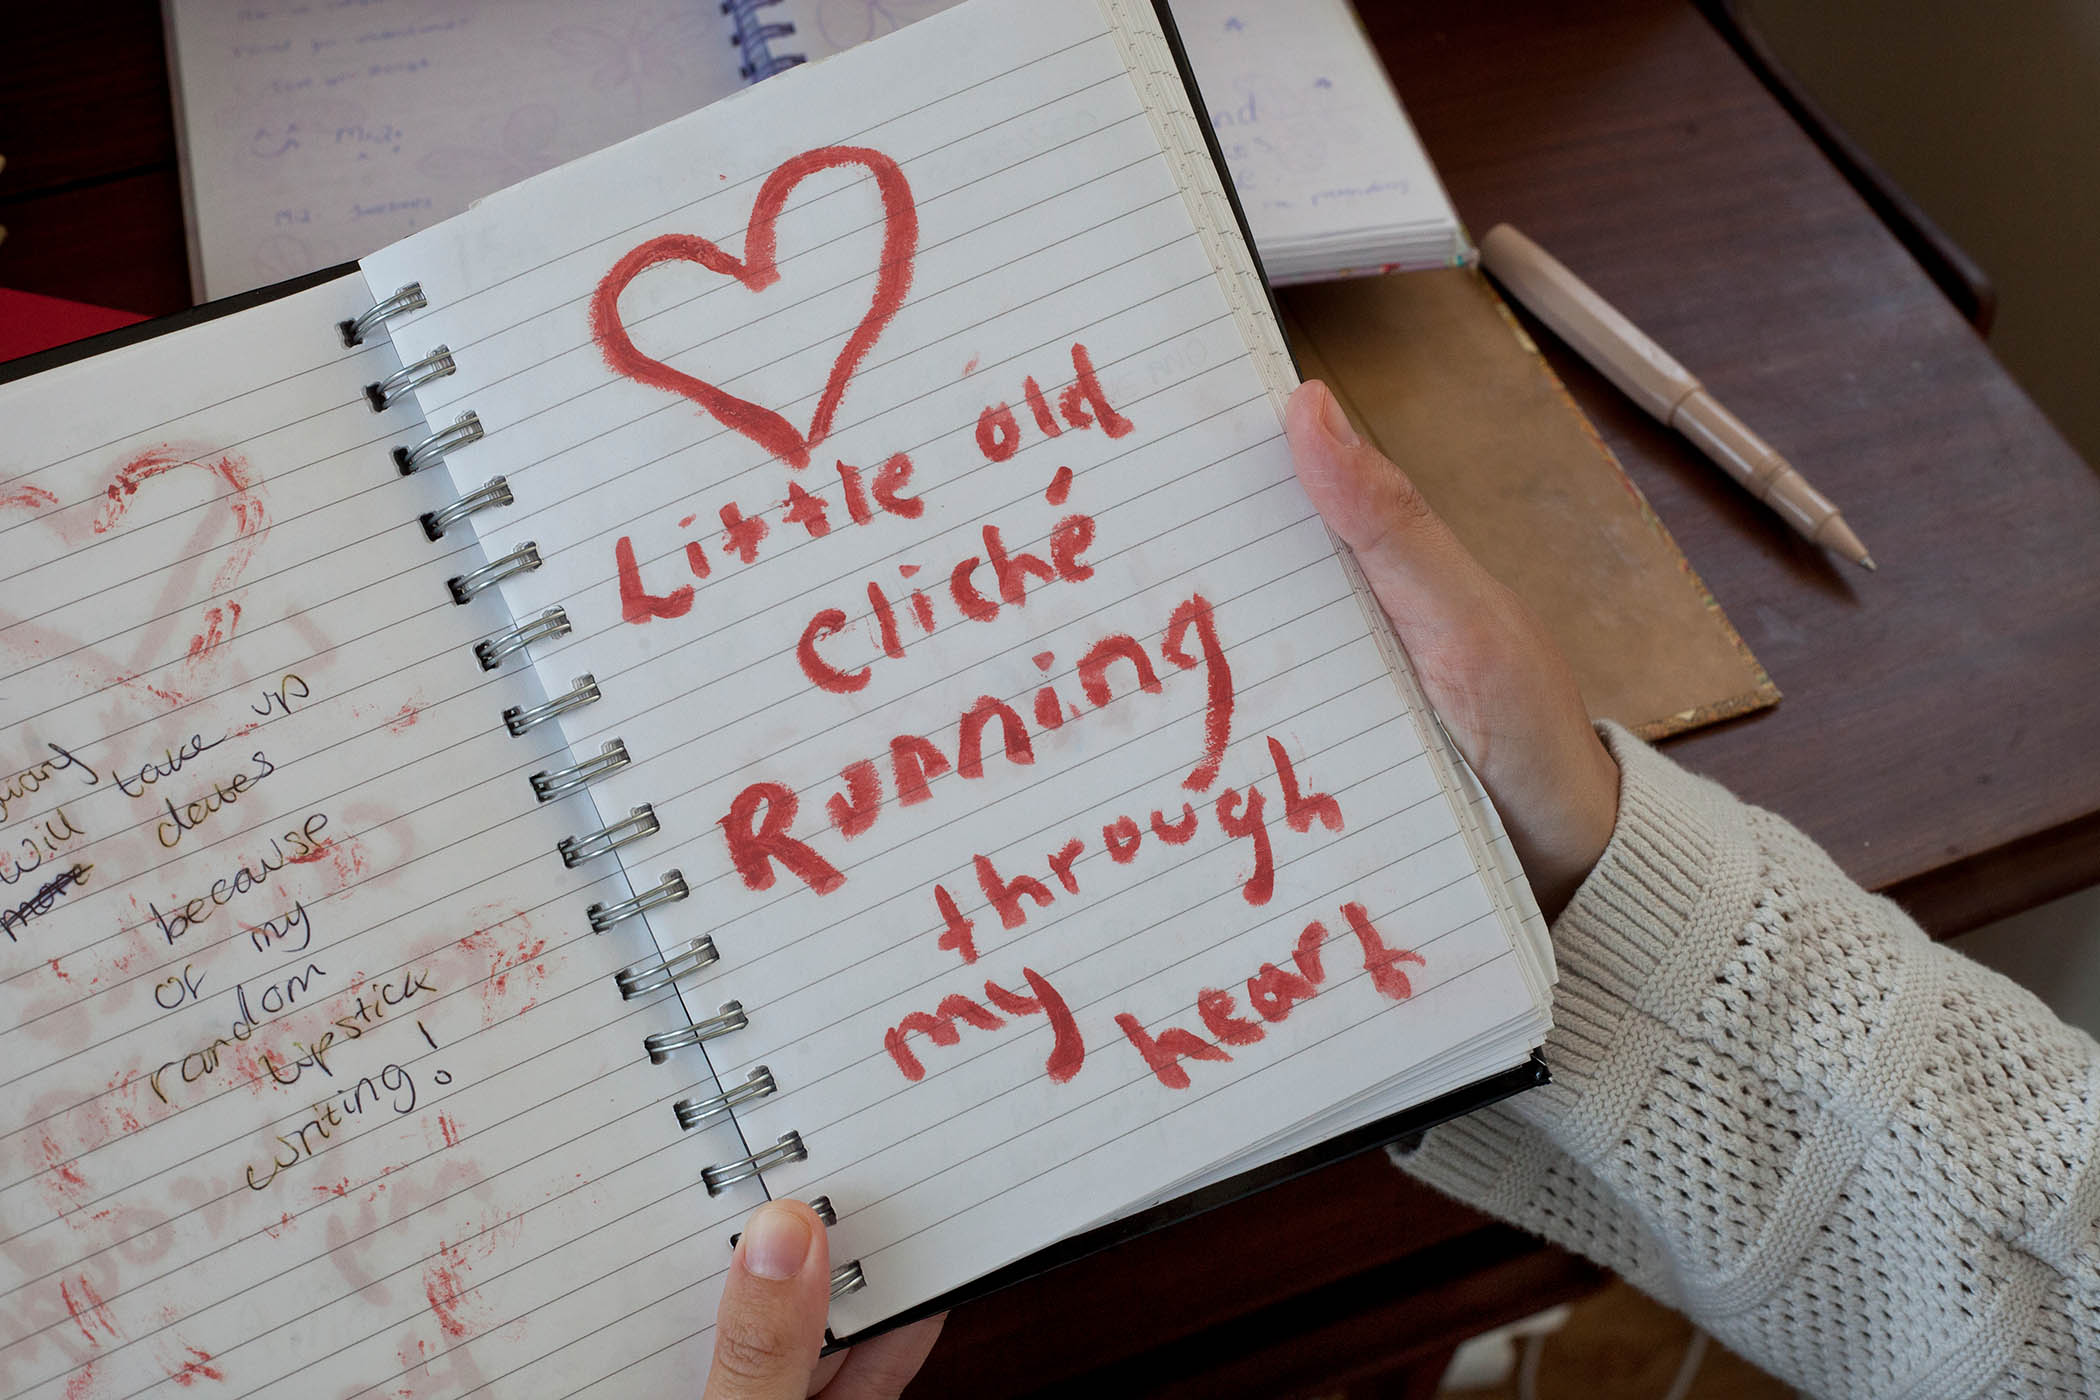 Little old
cliché
Running
through
my heart
diary
will take up
more dates
because
of my
random
lipstick
writing!